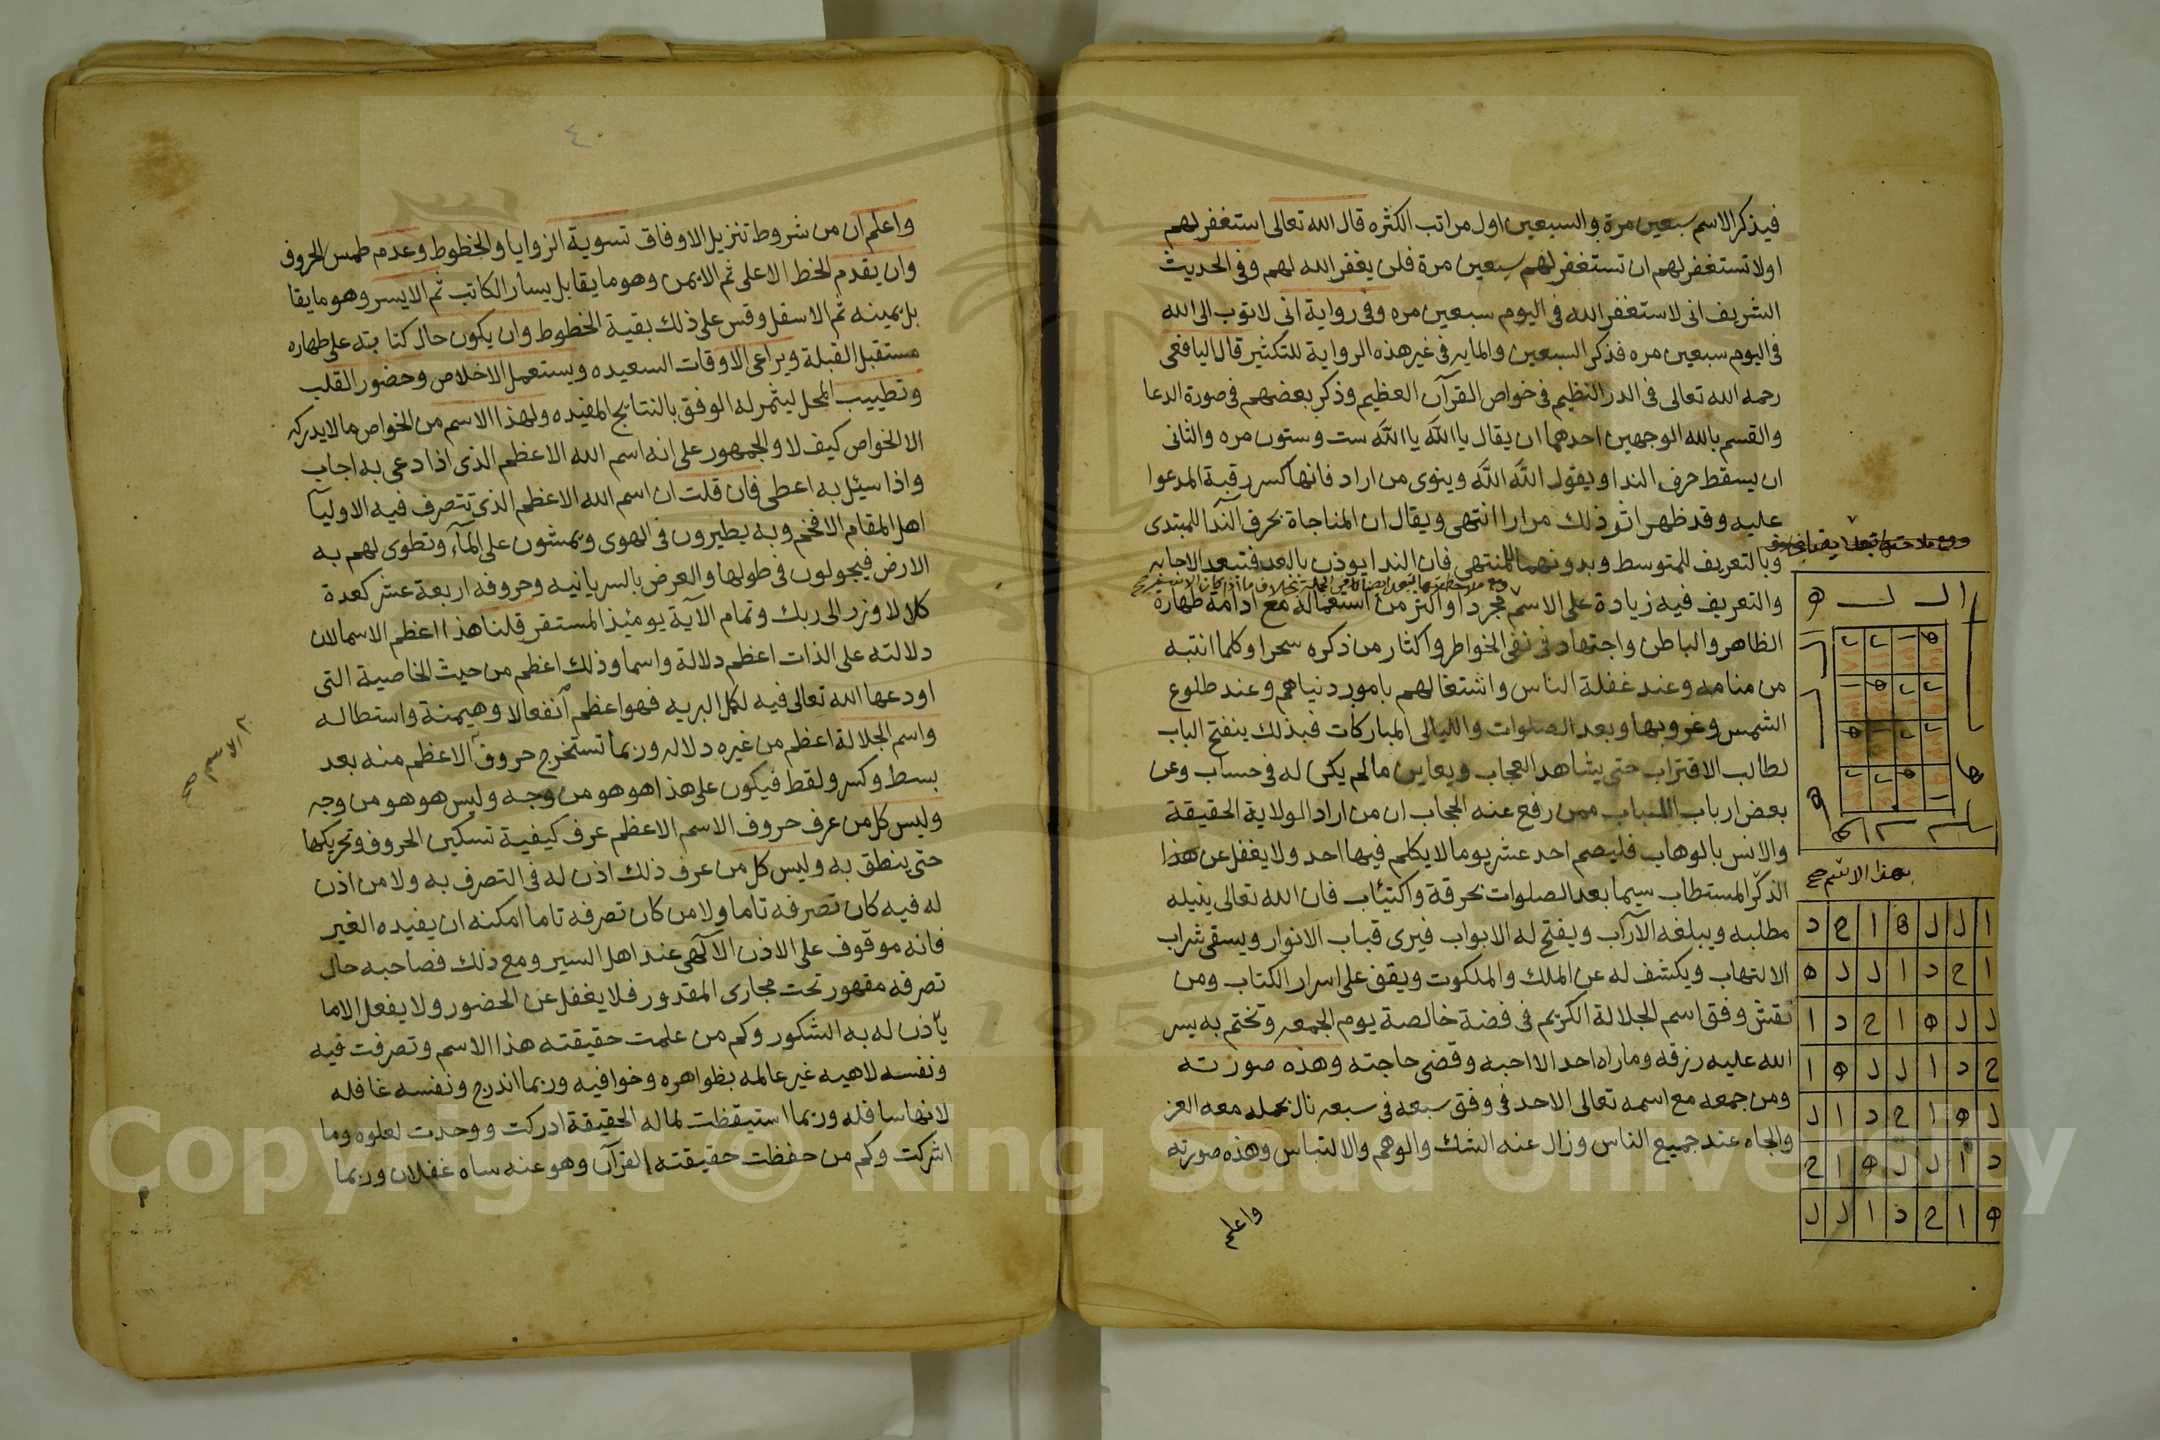 فيذكر الاسم سبعين مرة والسبعين اول مراتب الكثره قال الله تعالى استغفر لهم
اولا تستغفر لهم ان تستغفر لهم سبعين مرة فلن يغفر الله لهم وفى الحديث
الشريف انى لاستغفر الله فى اليوم سبعين مره وفى رواية انى لاتوب الى الله
فى اليوم سبعين مره فذكر السبعين والمايه فى غير هذه الرواية للتكثير قال اليافعى
رحمه الله تعالى فى الدر النظيم فى خواص القرآن العظيم وذكر بعضهم فى صورة الدعا
والقسم بالله الوجهين احدهما ان يقال يا الله يا الله ست وستون مره والثانى
ان يسقط حرف الندا ويقول الله الله وينوى من اراد فانها كسر رقبة المدعوا
عليه وقد ظهر اثر ذلك مرارا انتهى ويقال ان المناجاة بحرف الندآ للمبتدى
وبالتعريف للمتوسط وبدونهما للمنتهى فان الندا يوذن بالبعد فتبعد الاجابه
والتعريف فيه زيادة على الاسم مجردا واكثر من استعماله مع ادامة طهارة
الظاهر والباطن واجتهاد فى نفى الخواطر واكثار من ذكره سحرا وكلما انتبه
من منامه وعند غفلة الناس واشتغالهم بامور دنياهم وعند طلوع
الشمس وغروبها وبعد الصلوات والليالى المباركات فبذلك ينفتح الباب
لطالب الاقتراب حتى يشاهد العجاب ويعاين مالم يكن له فى حساب وعن
بعض ارباب اللباب ممن رفع عنه الحجاب ان من اراد الولاية الحقيقة
والانس بالوهاب فليصم احد عشر يوما لا يكلم فيها احد ولا يغفل عن هذا
الذكر المستطاب سيما بعد الصلوات بحرقة واكتئاب فان الله تعالى ينيله
مطلبه ويبلغه الآراب ويفتح له الابواب فيرى قباب الانوار ويسقى شراب
الالتهاب ويكشف له عن الملك والملكوت ويقف على اسرار الكتاب ومن
نقش وفق اسم الجلالة الكريم فى فضة خالصة يوم الجمعه وتختم به يسر
الله عليه رزقه وما راه احد الا احبه وقضى حاجته وهذه صورته
ومن جمعه مع اسمه تعالى الاحد فى وفق سبعه فى سبعه نال بحمله معه العز
والجاه عند جميع الناس وزال عنه الشك والوهم والالتباس وهذه صورته
واعلم
بهذا الاسم صح
ا ل ل ه ا ح د
ا ح د ا ل ل ه
ل ل ه ا ح د ا
ح د ا ل ل ه ا
ل ه ا ح د ا ل
د ا ل ل ه ا ح
ه ا ح د ا ل ل
٤
واعلم ان من شروط تنزيل الاوفاق تسوية الزوايا والخطوط وعدم طمس الحروف
وان يقدم الخط الاعلى ثم الايمن وهو ما يقابل يسار الكاتب ثم الايسر وهو ما يقا
بل يمينه ثم الاسفل وقس على ذلك بقية الخطوط وان يكون حال كتابته على طهاره
مستقبل القبلة ويراعى الاوقات السعيده ويستعمل الاخلاص وحضور القلب
وتطييب المحل ليثمر له الوفق بالنتايج المفيده ولهذا الاسم من الخواص ما لا يدركه
الا الخواص كيف لا والجمهور على انه اسم الله الاعظم الذى اذا دعى به اجاب
واذا سيئل به اعطى فان قلت ان اسم الله الاعظم الذى تتصرف فيه الاوليآ
اهل المقام الافخم وبه يطيرون فى الهوى ويمشون على المآء وتطوى لهم به
الارض فيجولون فى طولها والعرض بالسريانيه وحروفه اربعة عشر كعدة
كلا لا وزر الى ربك وتمام الآية يومئذ المستقر قلنا هذا اعظم الاسما لان
دلالته على الذات اعظم دلالة واسما وذلك اعظم من حيث الخاصية التى
اودعها الله تعالى فيه لكل البريه فهو اعظم انفعالا وهيمنة واستطاله
واسم الجلالة اعظم من غيره دلاله وربما تستخرج حروف الاعظم منه بعد
بسط وكسر ولقط فيكون على هذا هو هو من وجه وليس هو هو من وجه
وليس كل من عرف حروف الاسم الاعظم عرف كيفية تسكين الحروف وتحريكها
حتى ينطق به وليس كل من عرف ذلك اذن له فى التصرف به ولا من اذن
له فيه كان تصرفه تاما ولا من كان تصرفه تاما امكنه ان يفيده الغير
فانه موقوف على الاذن الآلهى عند اهل السير ومع ذلك فصاحبه حال
تصرفه مقهور تحت مجارى المقدور فلا يغفل عن الحضور ولا يفعل الا ما
يأذن له به الشكور وكم من علمت حقيقته هذا الاسم وتصرفت فيه
ونفسه لاهيه غير عالمه بظواهره وخوافيه وربما اندرج ونفسه غافله
لانها سافله وربما استيقظت لماله الحقيقة ادركت ووحدت لعلوه وما
اشركت وكم من حفظت حقيقته القرآن وهو عنه ساه غفلان وربما
الاسم صح
Copyright © King Saud University
1957